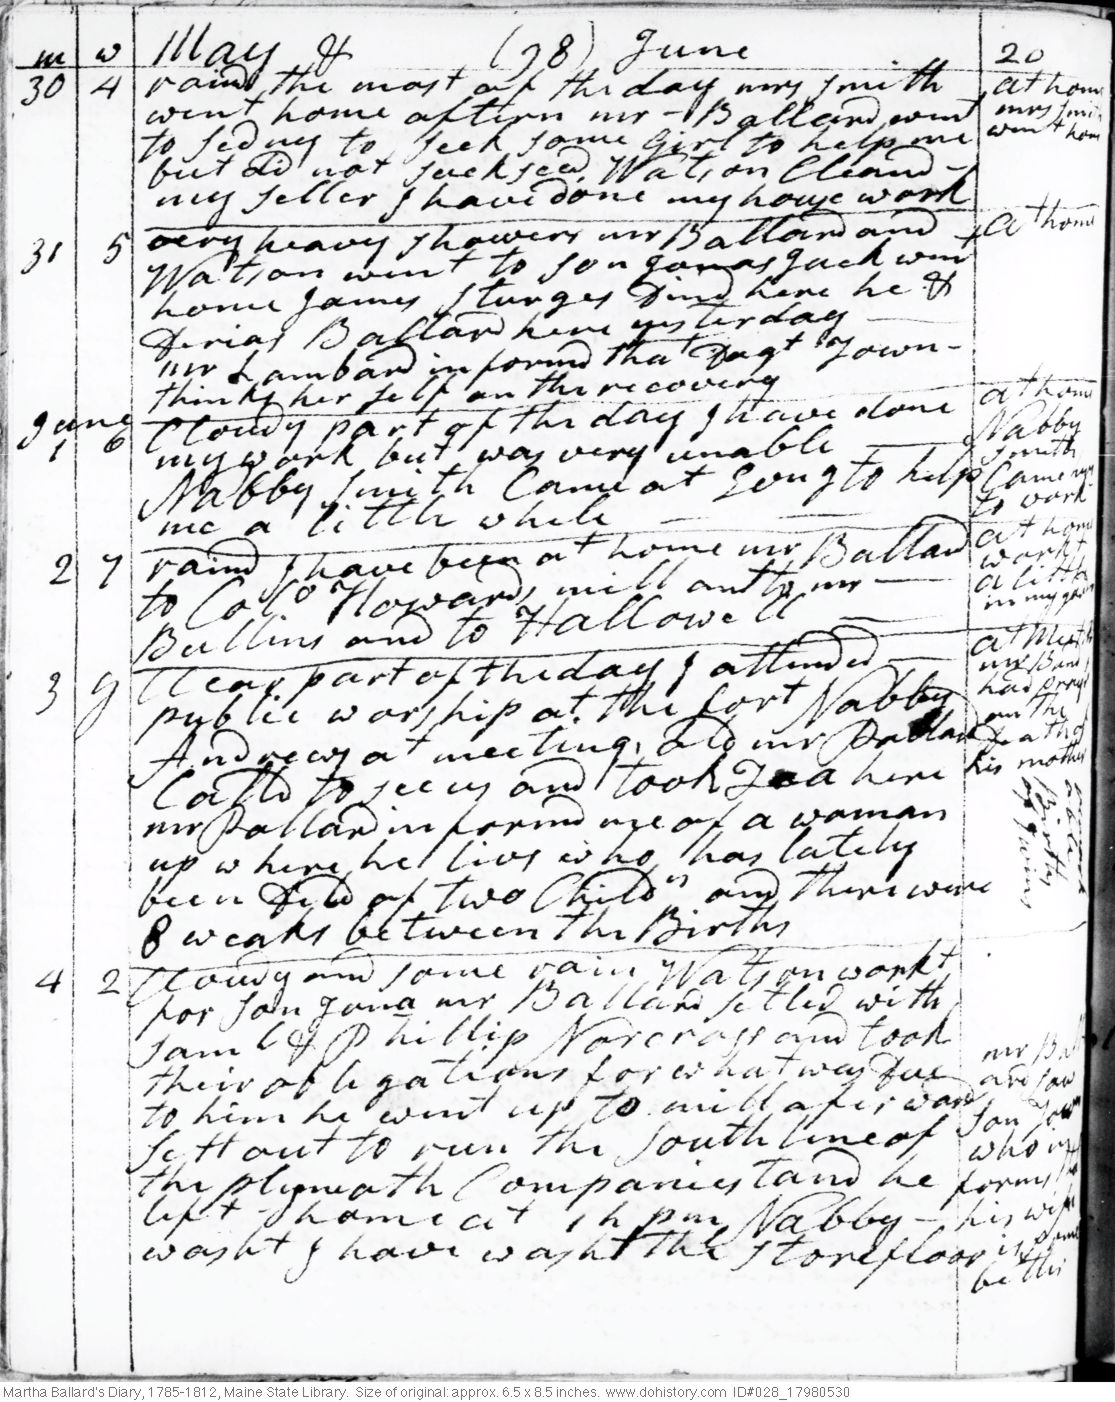 m w May & (98) June 20
30 4 raind the most of the day mrs Smith
went home aftern mr - Ballard went
to Sedny to seek some Girl to help me
but did not suckseed. Watson Cleand -
my seller I have done my house work
at home
mrs Smith
went home
31 5 very heavy showers mr Ballard and
Watson went to son Jonas Jack went
home James Sturges Dind here he &
Derias Ballard here yesterday
mr Lambard informd that Dagt Town -
thinks her self on the recovery
at home
June
1 6 Cloudy part of the day I have done
my work but was very unable
Nabby Smith Came at Evng to help
me a little while
at home
Nabby
Smith
Came
to work
2 7 raind I have been at home mr Ballard
to Colo Howards mill and to mr
Bullins and to Hallowell
at home
workt
a little
in my
3 g Clear part of the day I attended
public worship at the fort Nabby
Andrews at meeting. old mr Pollard
Calld to see us and took Tea here
mr Pollard informd me of a woman
up where he livs who has lately
been Dld of two Childn and there were
8 weaks between the Births
at
mr
had
on the
Death of
his mother
4 2 Cloudy and some rain Watson workt
for son Jona mr Ballard setled with
Saml & Phillip Norcross and took
their obligations for what was Due
to him he went up to mill aferward
Sett out to run the South line of
the plymoth Companies land he
left home at 1 h pm Nabby -
washt I have washt the store floor
mr Ball
ard saw
son Town
who in
forms
his wife
is
be this
Martha Ballard's Diary, 1785-1812, Maine State Library. Size of original: approx. 6.5 x 8.5 inches. www.dohistory.com ID#028_17980530